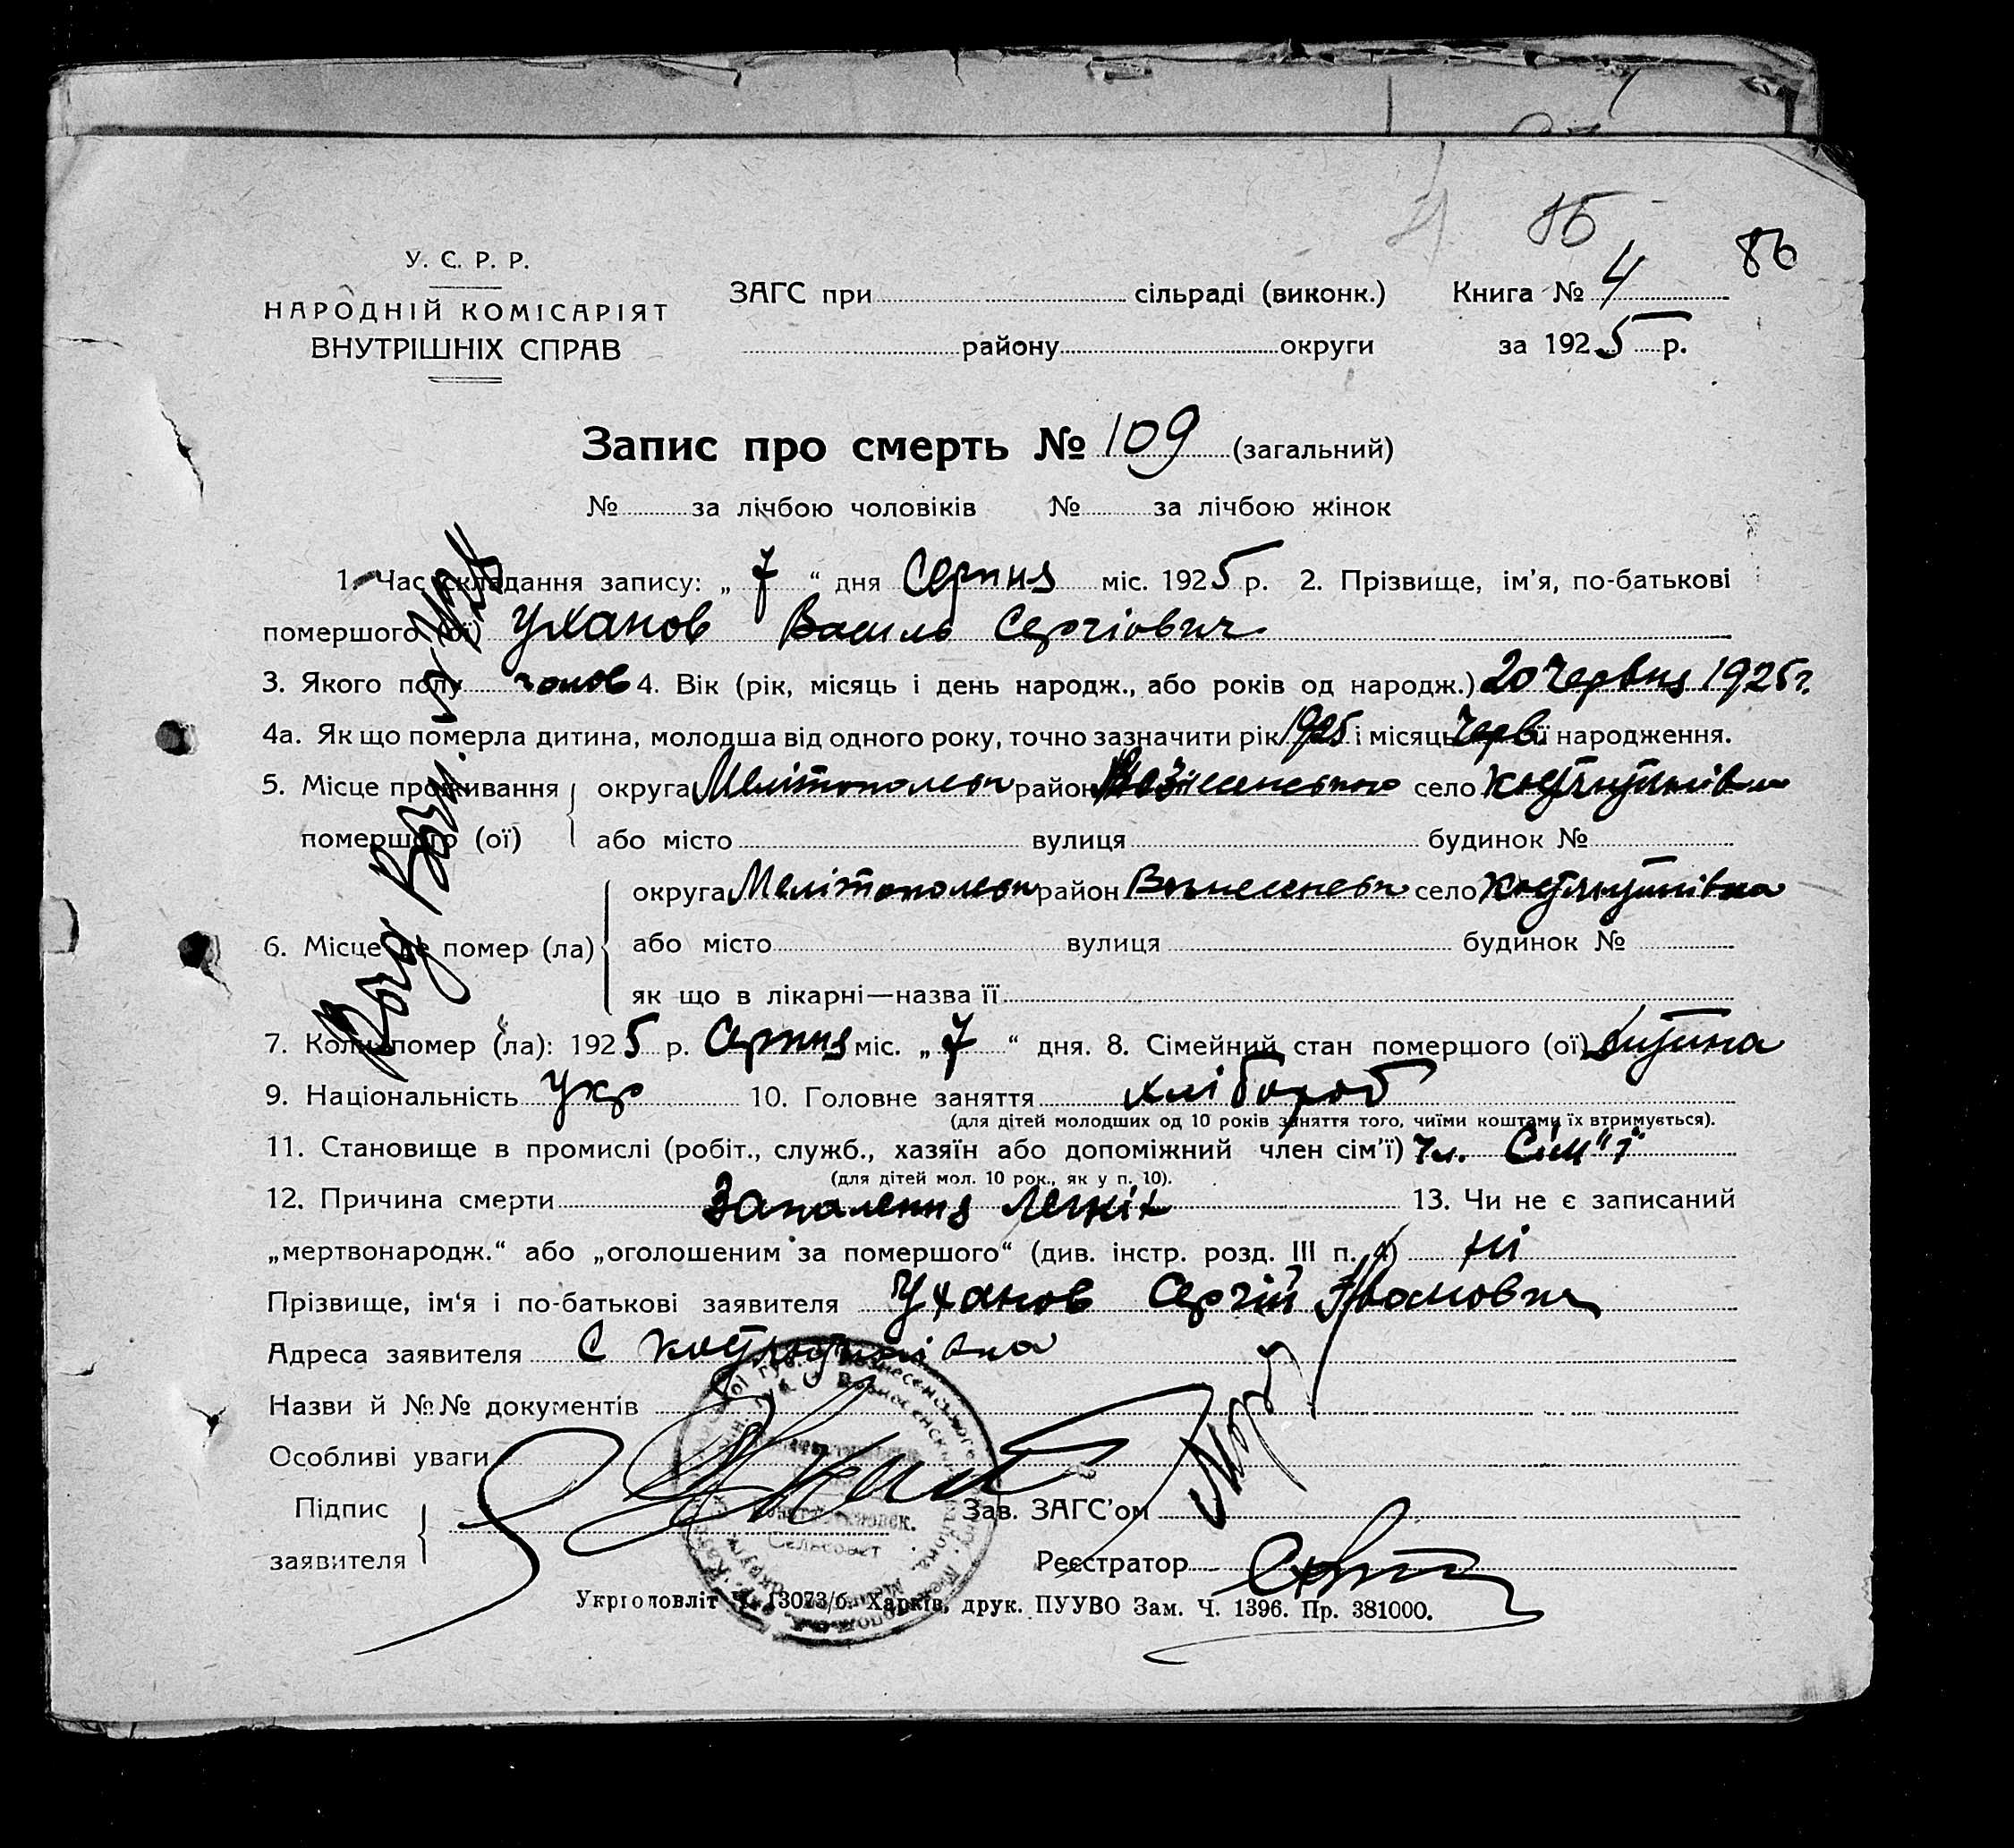 86
86
У. С. Р. Р.
НАРОДНІЙ КОМІСАРІЯТ
ВНУТРІШНІХ СПРАВ
ЗАГС при сільраді (виконк.) Книга № 4
району округи за 1925 р.
Запис про смерть № 109 (загальний)
№ за лічбою чоловіків № за лічбою жінок
1. Час складання запису: „ 7 “ дня Серпня міс. 1925 р. 2. Прізвище, ім’я, по-батькові
помершого (ої) Уханов Василь Сергіович
3. Якого полу чолов 4. Вік (рік, місяць і день народж., або років од народж.) 20 Червня 1925 г.
4а. Як що померла дитина, молодша від одного року, точно зазначити рік 1925 і місяць Черв її народження.
5. Місце проживання округа Мелітопольськ район село
помершого (ої) або місто вулиця будинок №
округа Мелітопольськ район Вознесенськ село
6. Місце де помер (ла) або місто вулиця будинок №
як що в лікарні—назва її
7. Коли помер (ла): 1925 р. Серпня міс. „ 7 “ дня. 8. Сімейний стан помершого (ої) дитина
9. Національність Укр 10. Головне заняття хлібороб
(для дітей молодших од 10 років заняття того, чиїми коштами їх втримується).
11. Становище в промислі (робіт., служб., хазяїн або допоміжний член сім’ї) чл. Сім"ї
(для дітей мол. 10 рок., як у п. 10).
12. Причина смерти Запалення легких 13. Чи не є записаний
„мертвонародж.“ або „оголошеним за помершого“ (див. інстр. розд. III п. 4) ні
Прізвище, ім‘я і по-батькові заявителя Уханов Сергій Іванович
Адреса заявителя с
Назви й №№ документів
Особливі уваги
Підпис
заявителя
Зав. ЗАГС’ом
Реєстратор
Сельсовет
Укрголовліт Ч. 13073/б. Харків, друк. ПУУВО Зам. Ч. 1396. Пр. 381000.